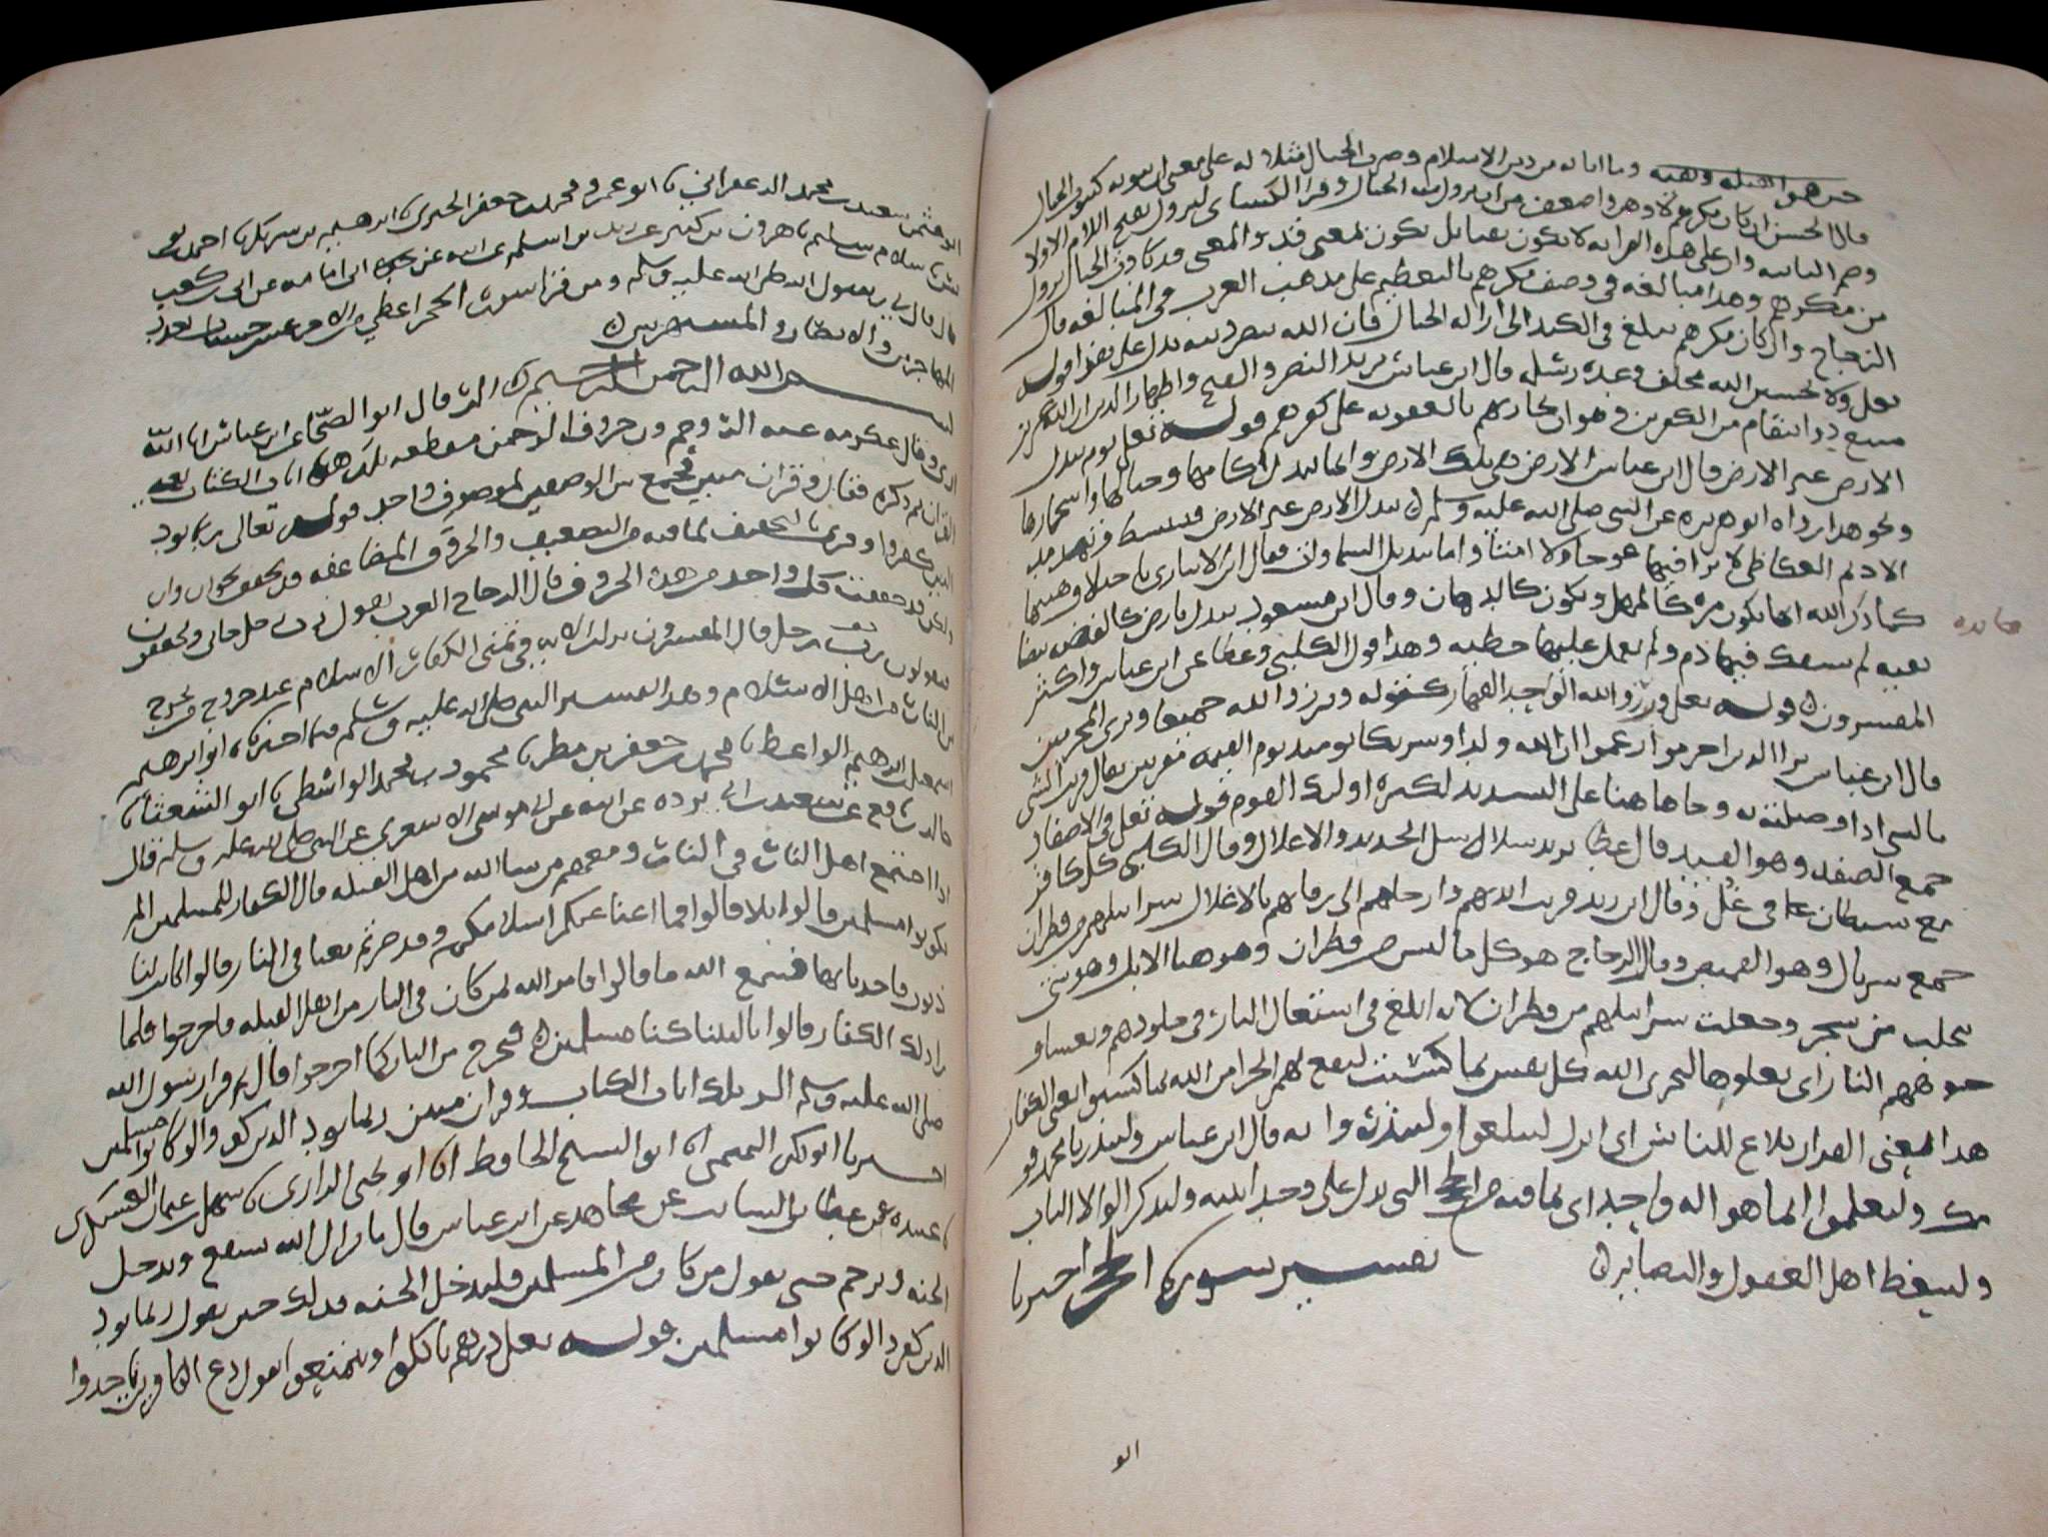 وما اتاك به من دين الاسلام وضرب الجبال مثلا له على معنى ان ثبوته كثبوت الجبال
قال الحسن ان كان مكرهم لاوهن واضعف من ان تزول منه الجبال وقرا الكسائي لتزول بفتح اللام الاولى
وضم الثانية وان على هذه القراءة لا تكون نفيا بل تكون بمعنى قد والمعنى قد كادت الجبال تزول
من مكرهم وهذا مبالغة في وصف مكرهم بالتعظيم على مذهب العرب في المبالغة قال
الزجاج وان كان مكرهم يبلغ في الكيد الى ازالة الجبال فان الله ينصر دينه يدل على هذا قوله
تعلى ولا تحسبن الله مخلف وعده رسله قال ابن عباس يريد النصر والفتح واظهار الدين ان الله عزيز
منيع ذو انتقام من الكفرين وهو ان يجازيهم بالعقوبة على كفرهم قوله تعلى يوم تبدل
الارض غير الارض قال ابن عباس الارض هي تلك الارض وانما تبدل اكامها وجبالها واشجارها
ونحو هذا رواه ابو هريرة عن النبي صلى الله عليه وسلم قال تبدل الارض غير الارض فتبسط وتمد مد
الاديم العكاظي لا ترا فيها عوجا ولا امتا واما تبديل السماوات فقال ابن الانباري باختلاف هيئاتها
كما ذكر الله انها تكون مرة كالمهل وتكون كالدهان وقال ابن مسعود تبدل بارض كالفضة بيضا
نقية لم يسفك فيها دم ولم يعمل عليها خطية وهذا قول الكلبي وعطا عن ابن عباس واكثر
المفسرين قوله تعلى وبرزوا لله الواحد القهار كقوله وبرزوا لله جميعا وترى المجرمين
قال ابن عباس يريد الذين اجرموا وزعموا ان لله ولدا وشريكا يومئذ يوم القيمة مقرنين يقال قرنت الشي
بالشي اذا وصلته به وجا هاهنا على التشديد لكثرة اوليك القوم قوله تعلى في الاصفاد
جمع الصفد وهو القيد قال عطا يريد سلاسل الحديد والاغلال وقال الكلبي كل كافر
مع شيطان في غل وقال ابن زيد قرنت ايديهم وارجلهم الى رقابهم بالاغلال سرابيلهم من قطران
جمع سربال وهو القميص وقال الزجاج هو كل ما لبس من قطران وهو هنا الابل وهو شي
يتحلب من شجر وجعلت سرابيلهم من قطران لانه ابلغ في اشتعال النار في جلودهم وتغشا و
جوههم النار اي تعلوها ليجزي الله كل نفس بما كسبت ليقع لهم الجزا من الله بما كسبوا يعني الكفار
هذا يعني القران بلاغ للناس اي انزل ليبلغوا ولينذروا به قال ابن عباس ولتنذر يا محمد قو
مك وليعلموا انما هو اله واحد اي بما فيه من الحجج التي تدل على وحدانيته وليذكر اولوا الالباب
وليتعظ اهل العقول والبصائر تفسير سورة الحجر اخبرنا
ابو
ابو عثمن سعيد بن محمد الزعفراني نا ابو عمرو محمد بن جعفر الحيري نا ابرهيم بن شريك نا احمد بن يو
نس نا سلام بن سليم نا هرون بن كثير عن زيد بن اسلم عن ابيه عن ابي امامه عن ابي بن كعب
قال قال لي رسول الله صلى الله عليه وسلم ومن قرا سورة الحجر اعطي من الاجر عشر حسنات بعدد
المهاجرين والانصار والمستهزين
بسم الله الرحمن الرحيم الر قال ابو الضحا عن ابن عباس انا الله
ارى وقال عكرمة عنه الر وحم ون حروف الرحمن مقطعة تلك هذه ايات الكتاب يعني
القران ثم ذكره فقال وقران مبين فجمع بين الوصفين لموصوف واحد قوله تعالى ربما يود
الذين كفروا وقرى بالتخفيف لما فيه من التضعيف والحروف المضاعفة قد تخفف نحو ان وان
ولكن قد خففت كل واحد من هذه الحروف قال الزجاج العرب تقول رب رجل جاني ويخففون
فيقولون رب رجل قال المفسرون نزلت الاية في تمني الكفار الاسلام عند خروج من يخرج
من النار من اهل الاسلام وهذا تفسير النبي صلى الله عليه وسلم فيما اخبرنا ابو ابرهيم
اسمعيل بن ابرهيم الواعظ نا محمد بن جعفر بن مطر نا محمود بن محمد الواسطي نا ابو الشعثا نا
خالد بن نافع عن سعيد بن ابي بردة عن ابيه عن ابي موسى الاشعري عن النبي صلى الله عليه وسلم قال
اذا اجتمع اهل النار في النار ومعهم من شا الله من اهل القبلة قال الكفار للمسلمين الم
تكونوا مسلمين قالوا بلا قالوا فما اغنا عنكم اسلامكم وقد صرتم معنا في النار قالوا كانت لنا
ذنوب فاخذنا بها فسمع الله ما قالوا فامر الله لمن كان في النار من اهل القبلة فاخرجوا فلما
راا ذلك الكفار قالوا يا ليتنا كنا مسلمين فنخرج من النار كما اخرجوا قال ثم قرا رسول الله
صلى الله عليه وسلم الر تلك ايات الكتاب وقران مبين ربما يود الذين كفروا لو كانوا مسلمين
اخبرنا ابو بكر التميمي انا ابو الشيخ الحافظ انا ابو يحيى الرازي نا سهل بن عثمان العسكري
نا عبيدة عن عطا بن السايب عن مجاهد عن ابن عباس قال ما يزال الله يشفع ويدخل
الجنة ويرحم حتى يقول من كان من المسلمين فليدخل الجنة فذلك حين يقول ربما يود
الذين كفروا لو كانوا مسلمين قوله تعلى ذرهم ياكلوا ويتمتعوا يقول دع الكفار ياخذوا